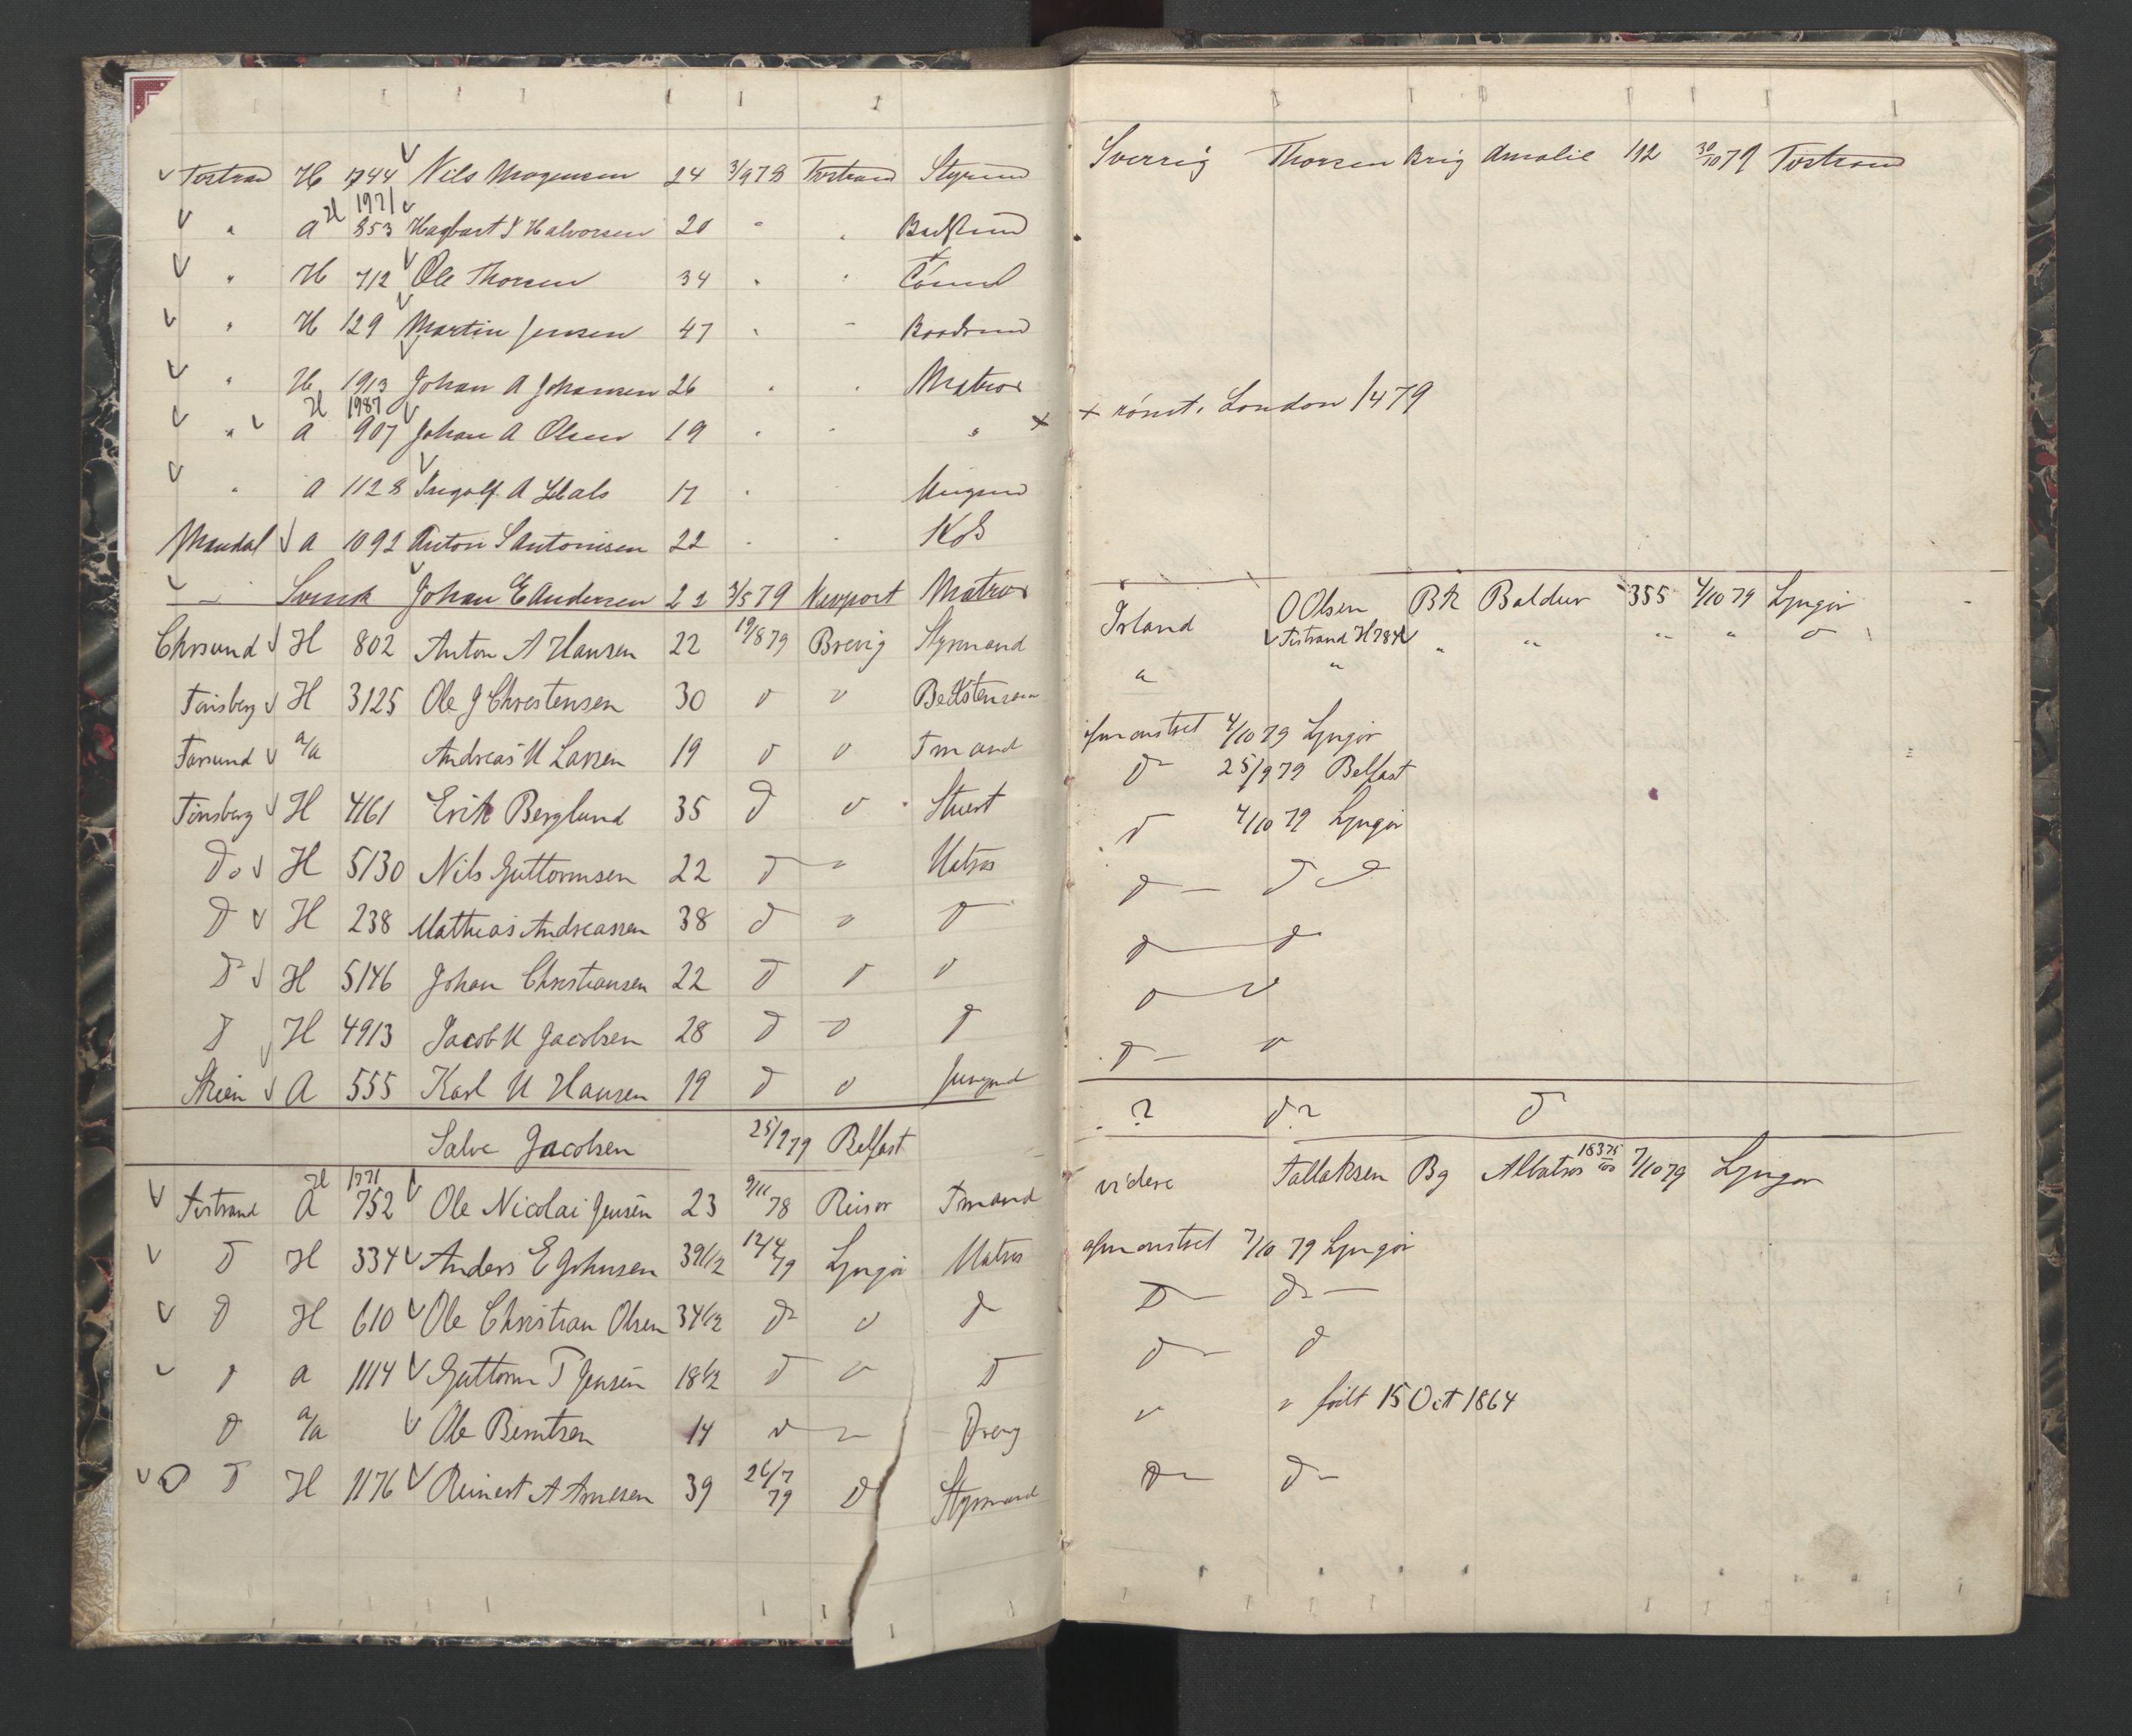 Tvstrand H 1744 Nils Mogensen 24 3/9 78 Tvstrand Styrmd
" H 1971
" A 853 Hagbart Halvorsen 20 " " Bestmd
" H 712 Ole Thorsen 34 " " Tömd
" H 129 Martin Jensen 47 " " Baadsmd
" H 1913 Johan A Johansen 26 " " Matros
H 1987
" A 907 Johan A Olsen 19 " " " x
" A 1128 Ingolf A Hals 17 " " Ungmd
Mandal A 1092 Anton S Antonisen 22 " "
Svensk Johan E Andersen 22 3/5 79 Newport Matros
Chrsund H 802 Anton A Hansen 22 19/8 79 Brevig Styrmand
Tönsberg H 3125 Ole J Christensen 30
Farsund a/a Andreas M Larsen 19 Tmand
Tönsberg H 4161 Erik Berglund 35 Stuert
Do H 5130 Nils Guttormsen 22 Matros
D H 238 Mathias Andreassen 38
D H 5146 Johan Christiansen 22
D H 4913 Jacob M Jacobsen 28
Skien A 555 Karl M Hansen 19 Jungmd
Salve Jacobsen 25/9 79 Belfast
H 1771
Tvstrand A 752 Ole Nicolai Jensen 23 9/11 78 Risør Tmand
D H 334 Anders E Johnsen 39 1/2 12/4 79 Lyngør Matros
D H 610 Ole Christian Olsen 34 1/2
A 1114 Guttorm T Jensen 18 1/2
D a/a Ole Berntsen 14 Dreng
D H 1176 Reinert A Arnesen 39 26/7 79 D Styrmand
Sverrig Thorsen Brig Amalie 192 30/10 79 Tvstrand
x rømt i London 1/4 79
Irland O Olsen Bk Baldur 355 4/10 79 Lyngør
Tvstrand H 784
afmønstret 4/10 79 Lyngør
D 25/9 79 Belfast
D 4/10 79 Lyngør
D D
D D
D
D
? D? D
videre Tallaksen Bg Albatros 18375/100 7/10 79 Lyngør
afmønstret 7/10 79 Lyngør
D D
D D
" " født 15 Oct 1864
D D